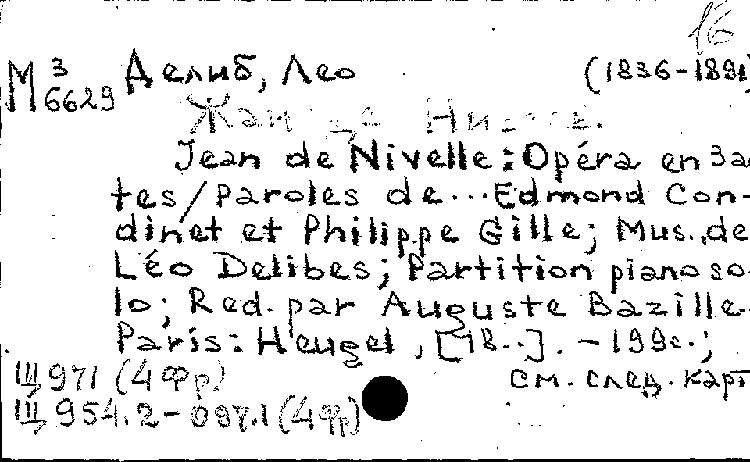 16
М 3 Делиб, Лео (1836-1891)
6629
Жан де Нивель.
Jean de Nivelle: Opéra en 3 ac
tes/Paroles de...Edmond Con-
dinet et Philippe Gille; Mus. de
Léo Delibes; Partition piano so-
lo; Red. par Auguste Bazille.
Paris: Heugel, [18..]. - 199с.;
Щ971 (4Фр) см. след. карт
Щ954.2-097.1(4Фр)